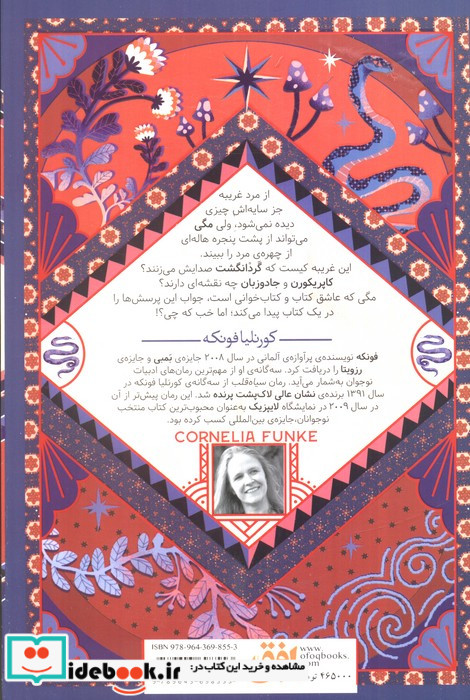 از مرد غریبه
جز سایه‌اش چیزی
دیده نمی‌شود، ولی مگی
می‌تواند از پشت پنجره هاله‌ای
از چهره‌ی مرد را ببیند.
این غریبه کیست که گردانگشت صدایش می‌زنند؟
کاپریکورن و جادوزبان چه نقشه‌ای دارند؟
مگی که عاشق کتاب و کتاب‌خوانی است، جواب این پرسش‌ها را
در یک کتاب پیدا می‌کند؛ اما خب که چی؟!
کورنلیا فونکه
فونکه نویسنده‌ی پرآوازه‌ی آلمانی در سال ۲۰۰۸ جایزه‌ی بَمبی و جایزه‌ی
رزویتا را دریافت کرد. سه‌گانه‌ی او از مهم‌ترین رمان‌های ادبیات
نوجوان به‌شمار می‌آید. رمان سیاه‌قلب از سه‌گانه‌ی کورنلیا فونکه در
سال ۱۳۹۱ برنده‌ی نشان عالی لاک‌پشت پرنده شد. این رمان پیش‌تر از آن
در سال ۲۰۰۹ در نمایشگاه لایپزیک به‌عنوان محبوب‌ترین کتاب منتخب
نوجوانان،جایزه‌ی بین‌المللی کسب کرده بود.
CORNELIA FUNKE
ISBN 978-964-369-855-3
www.
ofoqbooks.
om
مشاهده و خرید این کتاب در:
۴۶۵۰۰۰ تو
idebook.ir